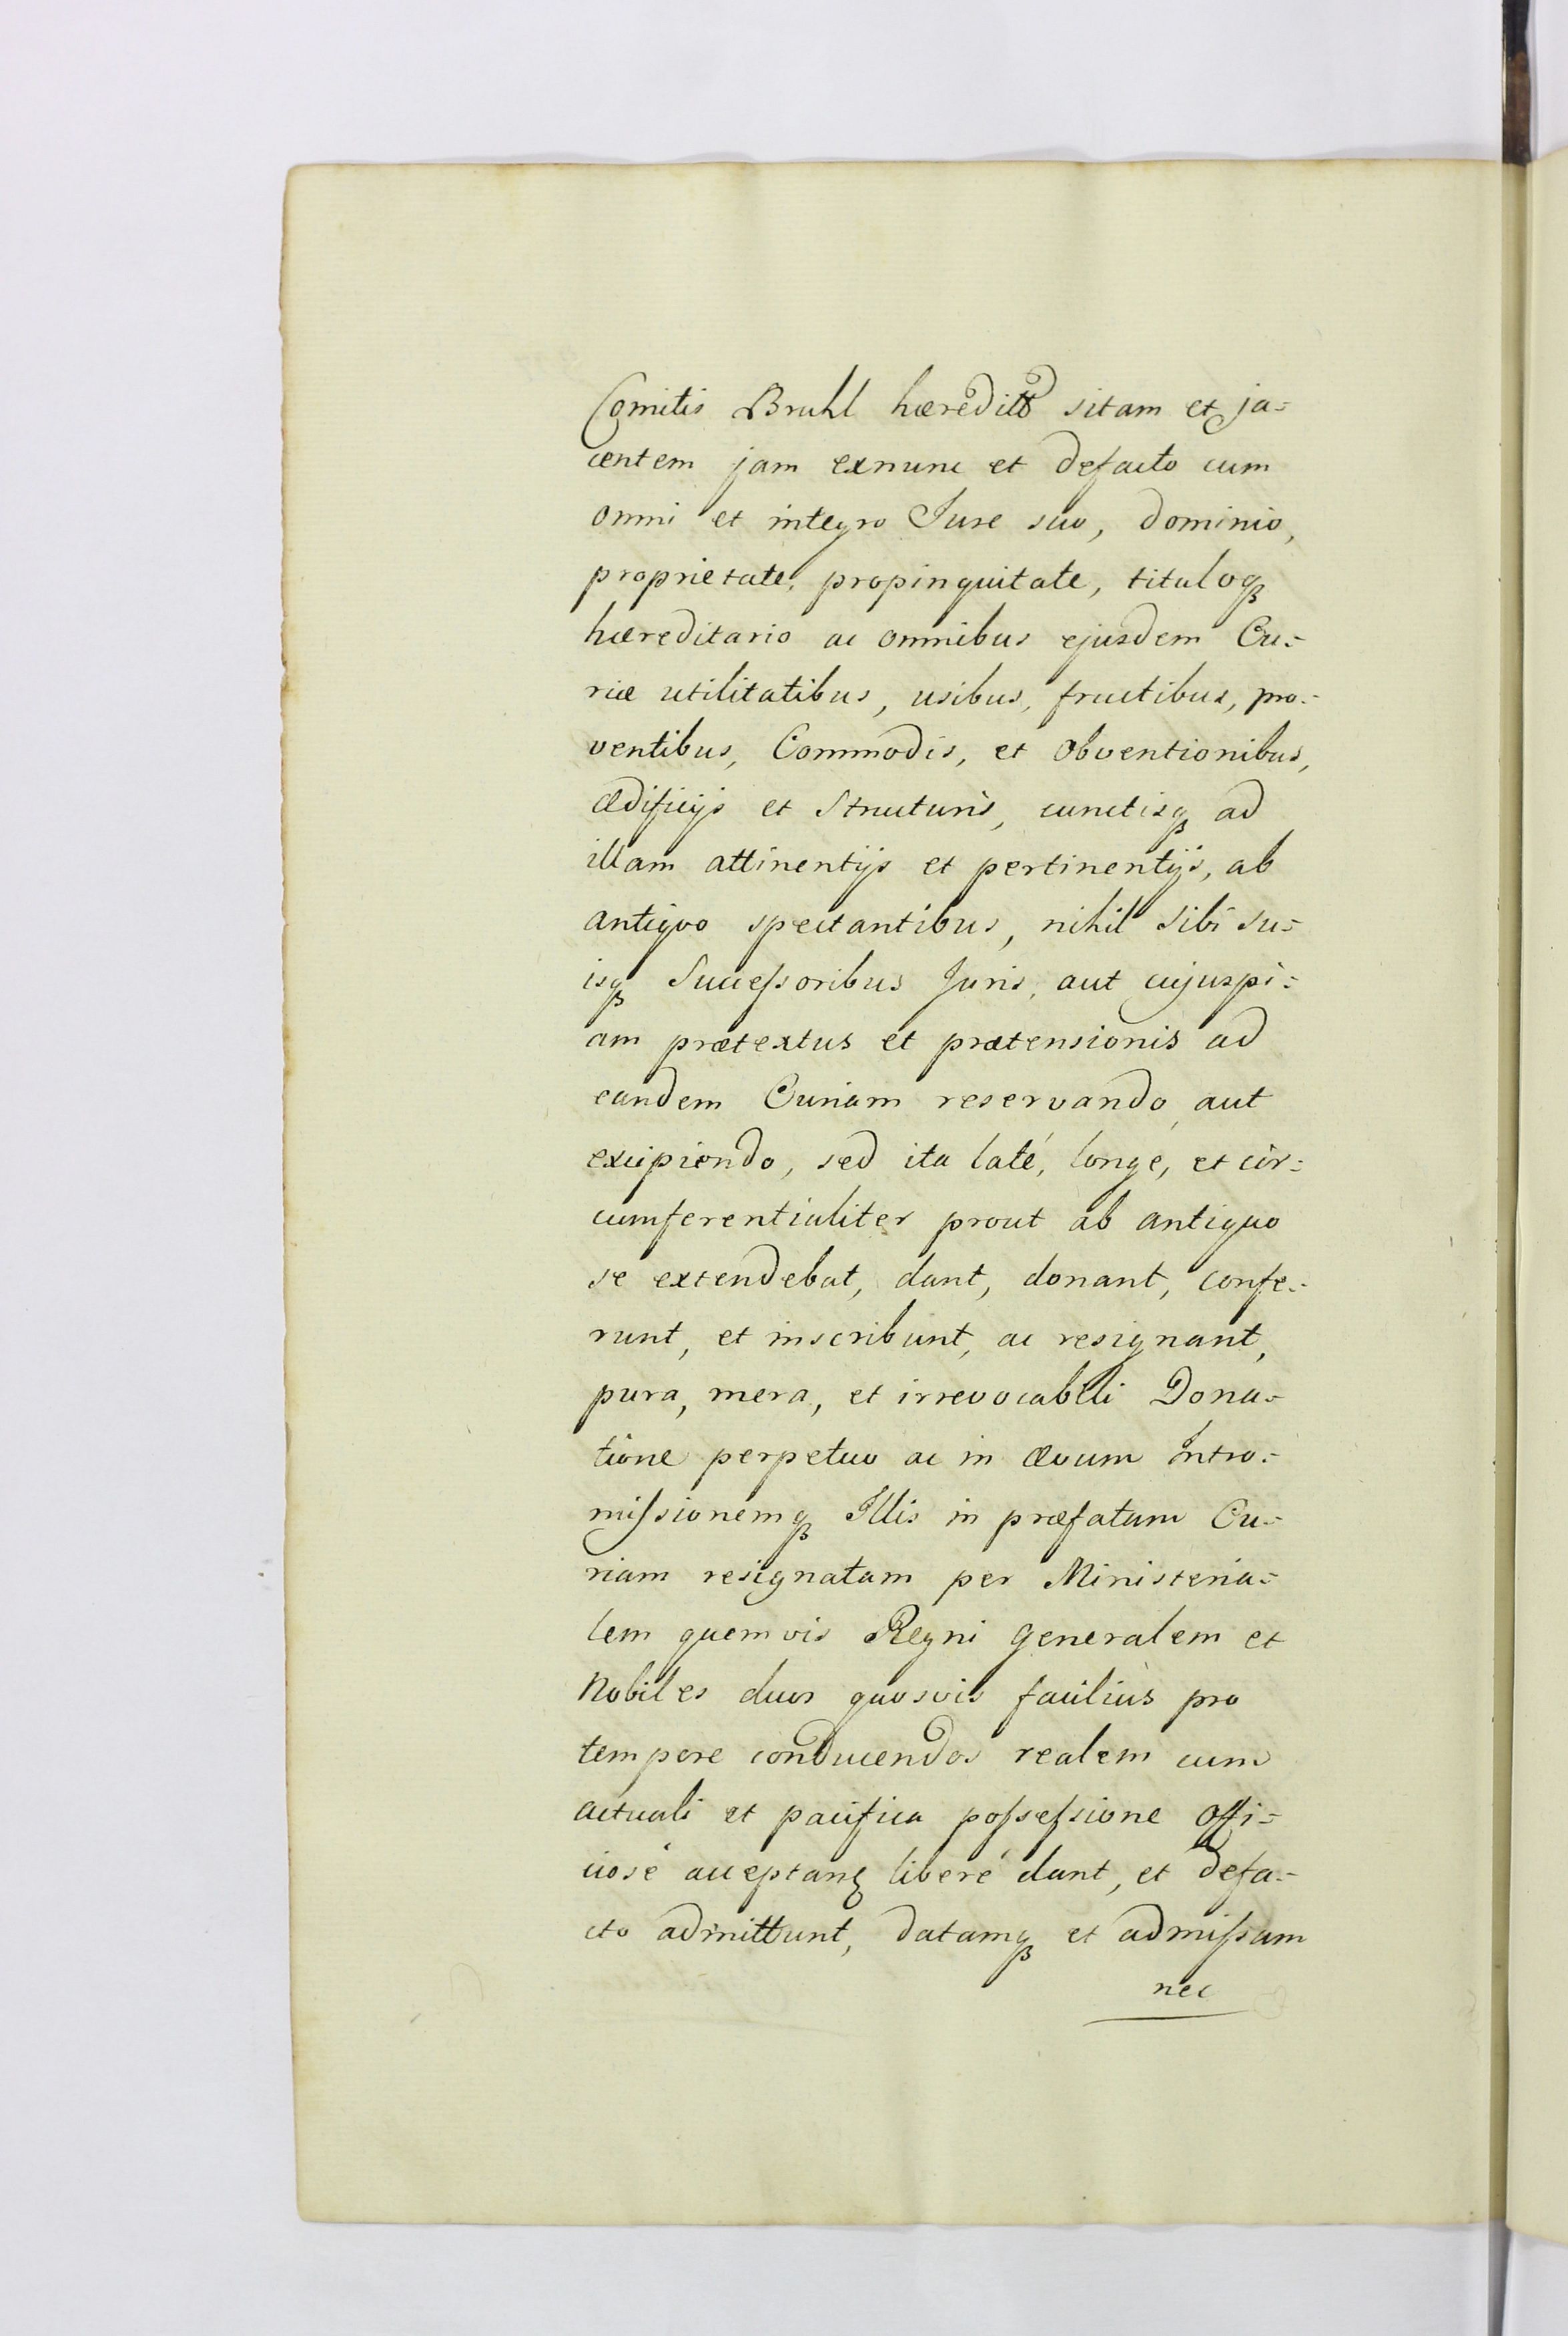 Comitis Bruhl hæredittt sitam et ja=
centem jam exnunc et defacto cum
omni et integro Jure suo, dominio,
proprietate, propinquitate, tituloq₃
hæreditario ac omnibus ejusdem Cu=
riæ utilitatibus, usibus, fructibus, pro=
ventibus, Commodis, et obventionibus,
ædificijs et Structuris, cunctisq₃ ad
illam attinentijs et pertinentijs, ab
antiquo spectantibus, nihil sibi su=
isq₃ Succeſsoribus Juris, aut cujuspi=
am prætextus et prætensionis ad
eandem Curiam reservando, aut
excipiendo, sed ita laté, longé, et cir=
cumferentialiter prout ab antiquo
se extendebat, dant, donant, confe=
runt, et inscribunt, ac resignant,
pura, mera, et irrevocabili Dona=
tione perpetuo ac in ævum Intro=
miſsionemq₃ Illis in præfatam Cu=
riam resignatam per Ministeria=
lem quemvis Regni Generalem et
Nobiles duos quosvis facilius pro
tempore conducendos realem cum
actuali et pacifica poſseſsione offi=
ciosé acceptanẓ liberé dant, et defa=
cto admittunt, datamq₃ et admiſsam
nec